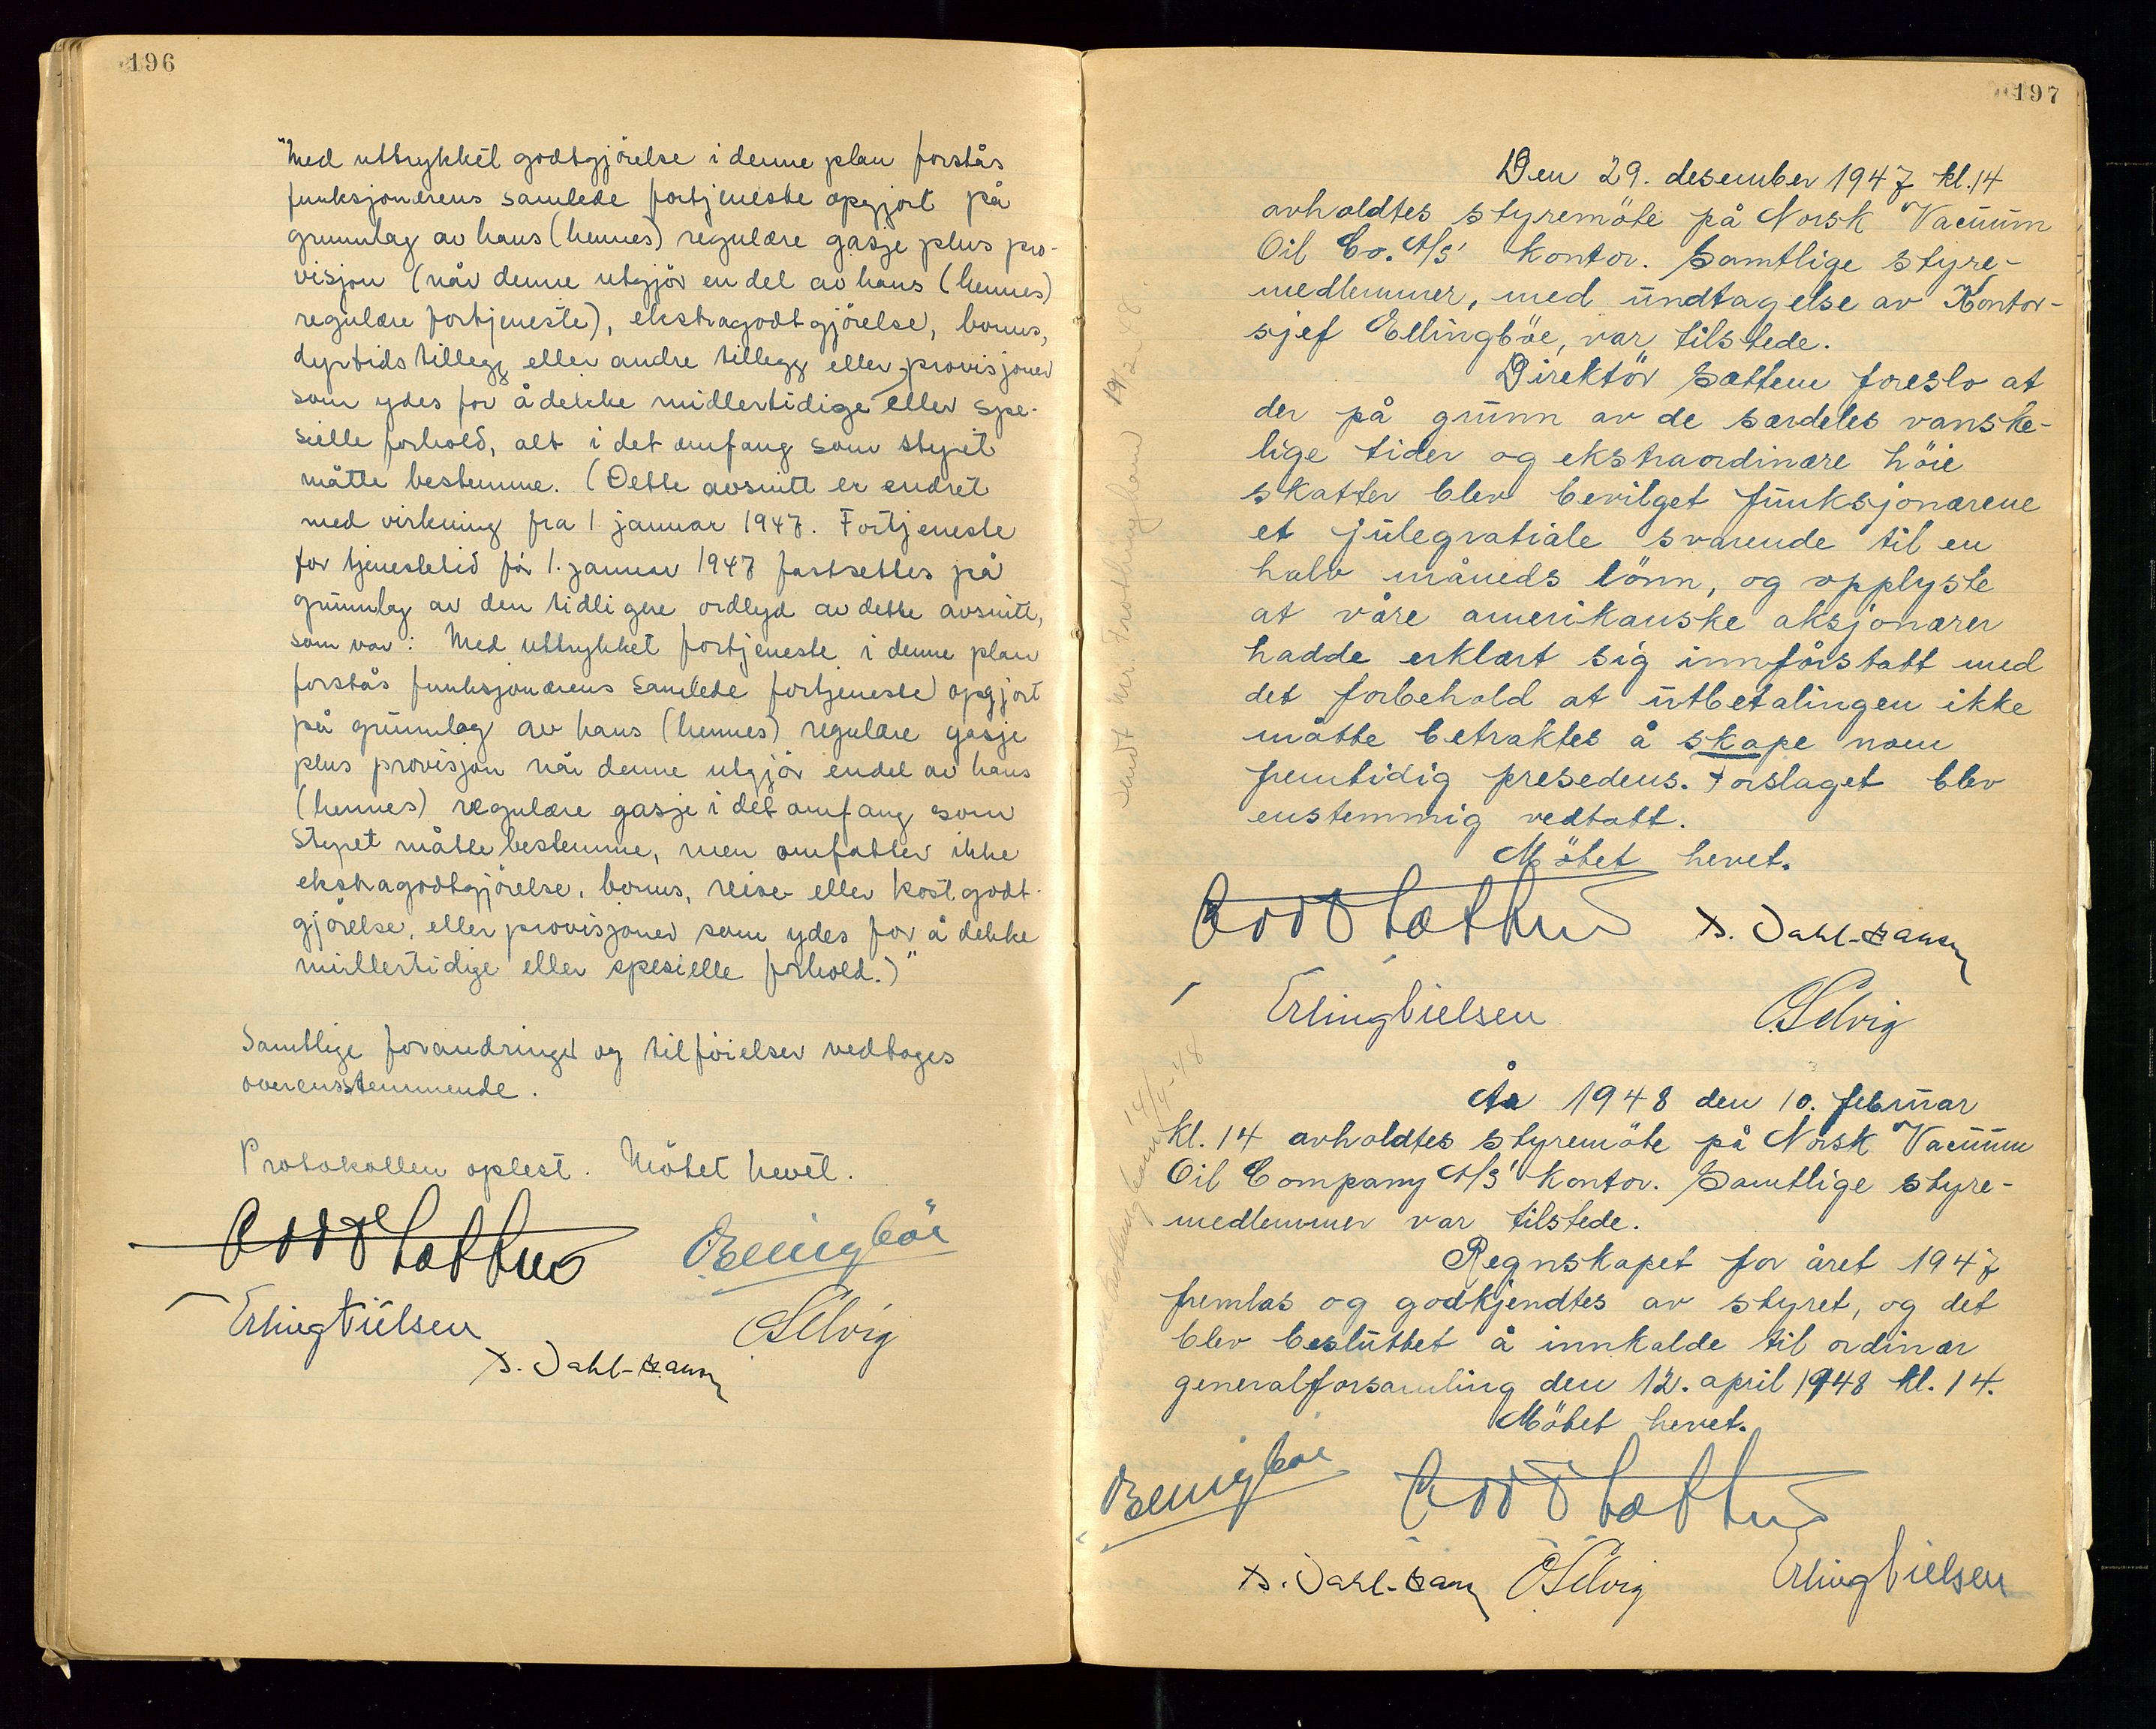 196
"Med uttrykket godtgjörelse i denne plan forstås
funksjonærens samlede fortjeneste opgjort på
grunnlag av hans (hennes) regulære gasje plus pro-
visjon (når denne utgjör en del av hans (hennes)
regulære fortjeneste), ekstragodtgjörelse, bonus,
dyrtidstillegg eller andre tillegg eller provisjoner
som ydes for å dekke midlertidige eller spe-
sielle forhold, alt i det omfang som styret
måtte bestemme. (Dette avsnitt er endret
med virkning fra 1 januar 1947. Fortjeneste
for tjenestetid før 1. januar 1947 fastsettes på
grunnlag av den tidligere ordlyd av dette avsnitt,
som var: Med uttrykket fortjeneste i denne plan
forstås funksjonærens samlede fortjeneste opgjort
på grunnlag av hans (hennes) regulære gasje
plus provisjon når denne utgjör endel av hans
(hennes) regulære gasje i det omfang som
styret måtte bestemme, men omfatter ikke
ekstragodtgjörelse, bonus, reise- eller kostgodt-
gjörelse, eller provisjoner som ydes for å dekke
midlertidige eller spesielle forhold.)"
Samtlige forandringer og tilföielser vedtages
overensstemmende.
Protokollen oplest. Mötet hevet.
Odd Sættem
Ellingböe
Erling Nielsen
O Selvig
D. Dahl-Hansen
197
Den 29. desember 1947 kl. 14
avholdtes styremöte på Norsk Vacuum
Oil Co. A/S' kontor. Samtlige styre-
medlemmer, med undtagelse av Kontor-
sjef Ellingböe, var tilstede.
Direktör Sættem foreslo at
der på grunn av de særdeles vanske-
lige tider og ekstraordinære höie
skatter blev bevilget funksjonærene
et julegratiale svarende til en
halv måneds lönn, og opplyste
at våre amerikanske aksjonærer
hadde erklært sig innforstatt med
det forbehold at utbetalingen ikke
måtte betraktes å skape noen
fremtidig presedens. Forslaget blev
enstemmig vedtatt.
Mötet hevet.
Odd Sættem
D. Dahl-Hansen
Erling Nielsen
O Selvig
Sendt Mr. Frothingham 19/2-48.
År 1948 den 10. februar
kl. 14 avholdtes styremöte på Norsk Vacuum
Oil Company A/S' kontor. Samtlige styre-
medlemmer var tilstede.
Regnskapet for året 1947
fremlas og godkjendtes av styret, og det
blev besluttet å innkalde til ordinær
generalforsamling den 12. april 1948 kl. 14.
Mötet hevet.
14/4-48
Ellingböe
Odd Sættem
D. Dahl-Hansen
O Selvig
Erling Nielsen